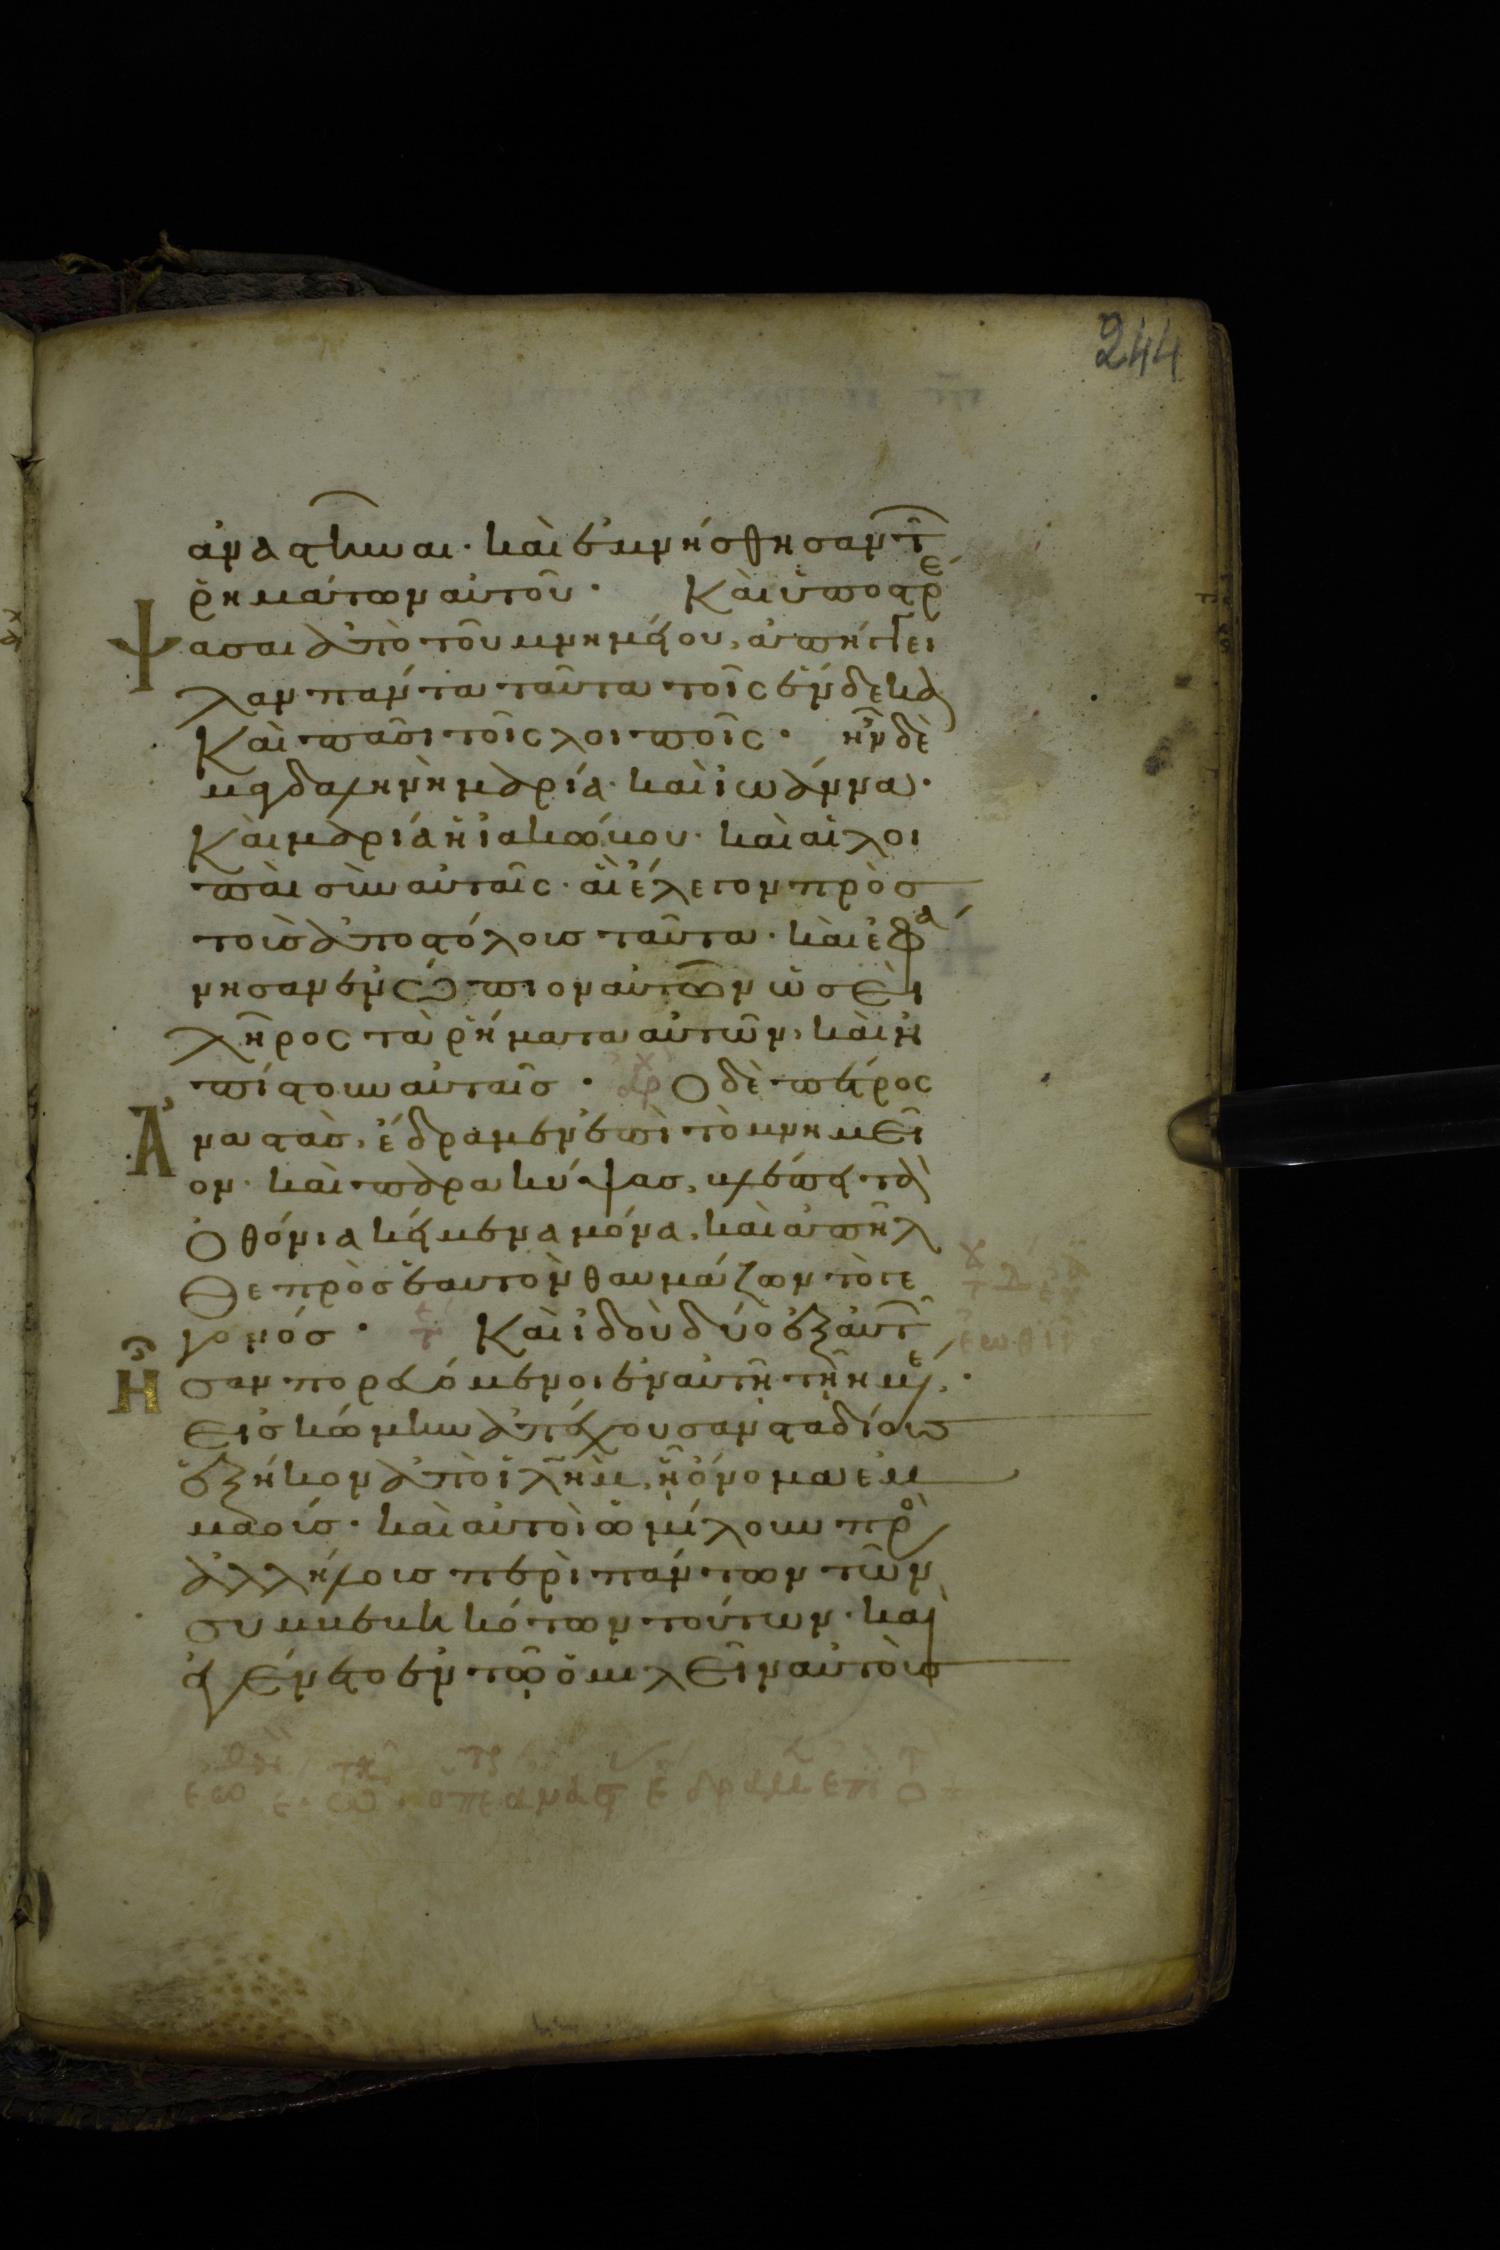 244
ἀναστῆναι· καὶ ἐμνήσθησαν τ̑
ῥημάτων αὐτοῦ· Καὶ ὑποστρέ
ψασαι ἀπὸ τοῦ μνημείου, ἀπήγγει
λαν πάντα ταῦτα τοῖς ἕνδεκα
καὶ πᾶσι τοῖς λοιποῖς· ἦν δὲ
μαγδαληνὴ μαρία· καὶ ἰωάννα·
Καὶ μαρία ἡ ἰακώβου· καὶ αἱ λοι
παὶ σὺν αὐταῖς· αἳ ἔλεγον πρὸσ
τοὺσ ἀποστόλουσ ταῦτα· καὶ ἐφά
νησαν ἐνώπιον αὐτῶν ὡσεὶ
λῆρος τὰ ῥήματα αὐτῶν, καὶ ἠ
πίστουν αὐταῖσ· Ὁ δὲ πέτρος
Ἀναστὰσ, ἔδραμεν ἐπὶ τὸ μνημεῖ
ον· καὶ παρακύψασ, βλέπει τὰ
ὀθόνια κείμενα μόνα, καὶ ἀπῆλ
θε πρὸσ ἑαυτὸν θαυμάζων τὸ γε
γονόσ· Καὶ ἰδοὺ δύο ἐξ αὐτ̑
Ἦσαν πορευόμενοι ἐν αὐτῇ τῇ ἡμέ,
εἰσ κώμην ἀπέχουσαν σταδίουσ
ἑξήκοντ ἀπὸ ἱλῆμ, ᾗ ὄνομα ἐμ
μαούσ· καὶ αὐτοὶ ὡμίλουν πρὸ
ἀλλήλουσ περὶ πάντων τῶν
συμβεβηκότων τούτων· καὶ
ἐγένετο ἐν τῷ ὁμιλεῖν αὐτοὺσ